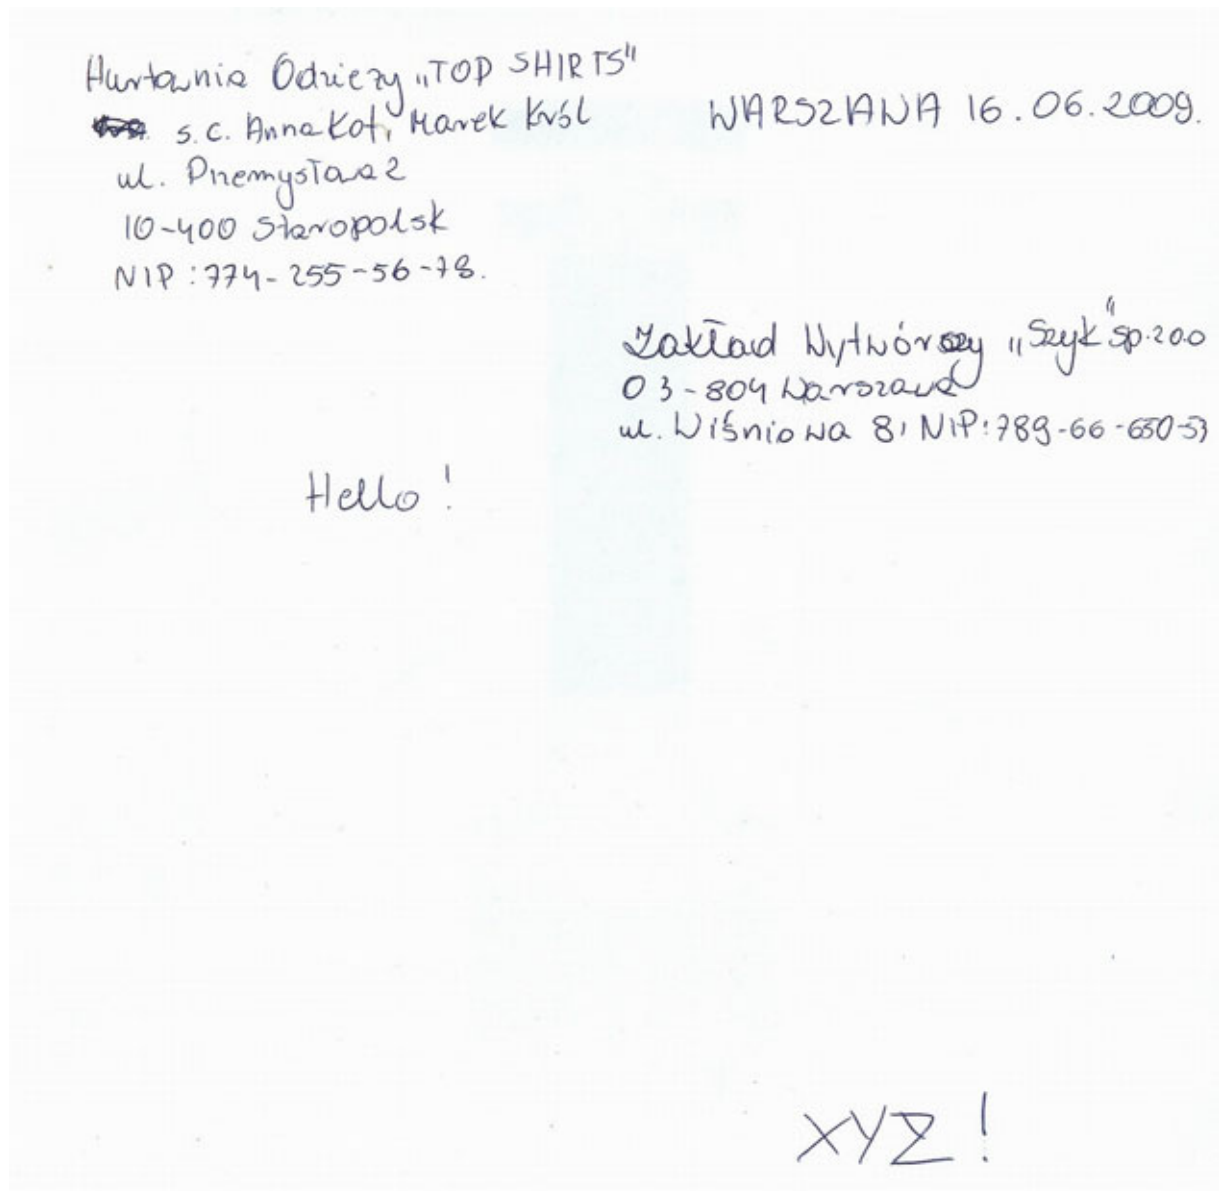 Hurtownia Odzieży „TOP SHIRTS"
s.c. Anna Kot, Marek Król
WARSZAWA 16.06.2009.
ul. Przemysława 2
10-400 Staropolsk
NIP: 774-255-56-78.
Zakład Wytwórczy „Szyk" sp. z o.o
03-804 Warszawa
ul. Wiśniowa 8, NIP: 789-66-650-53
Hello!
XYZ!